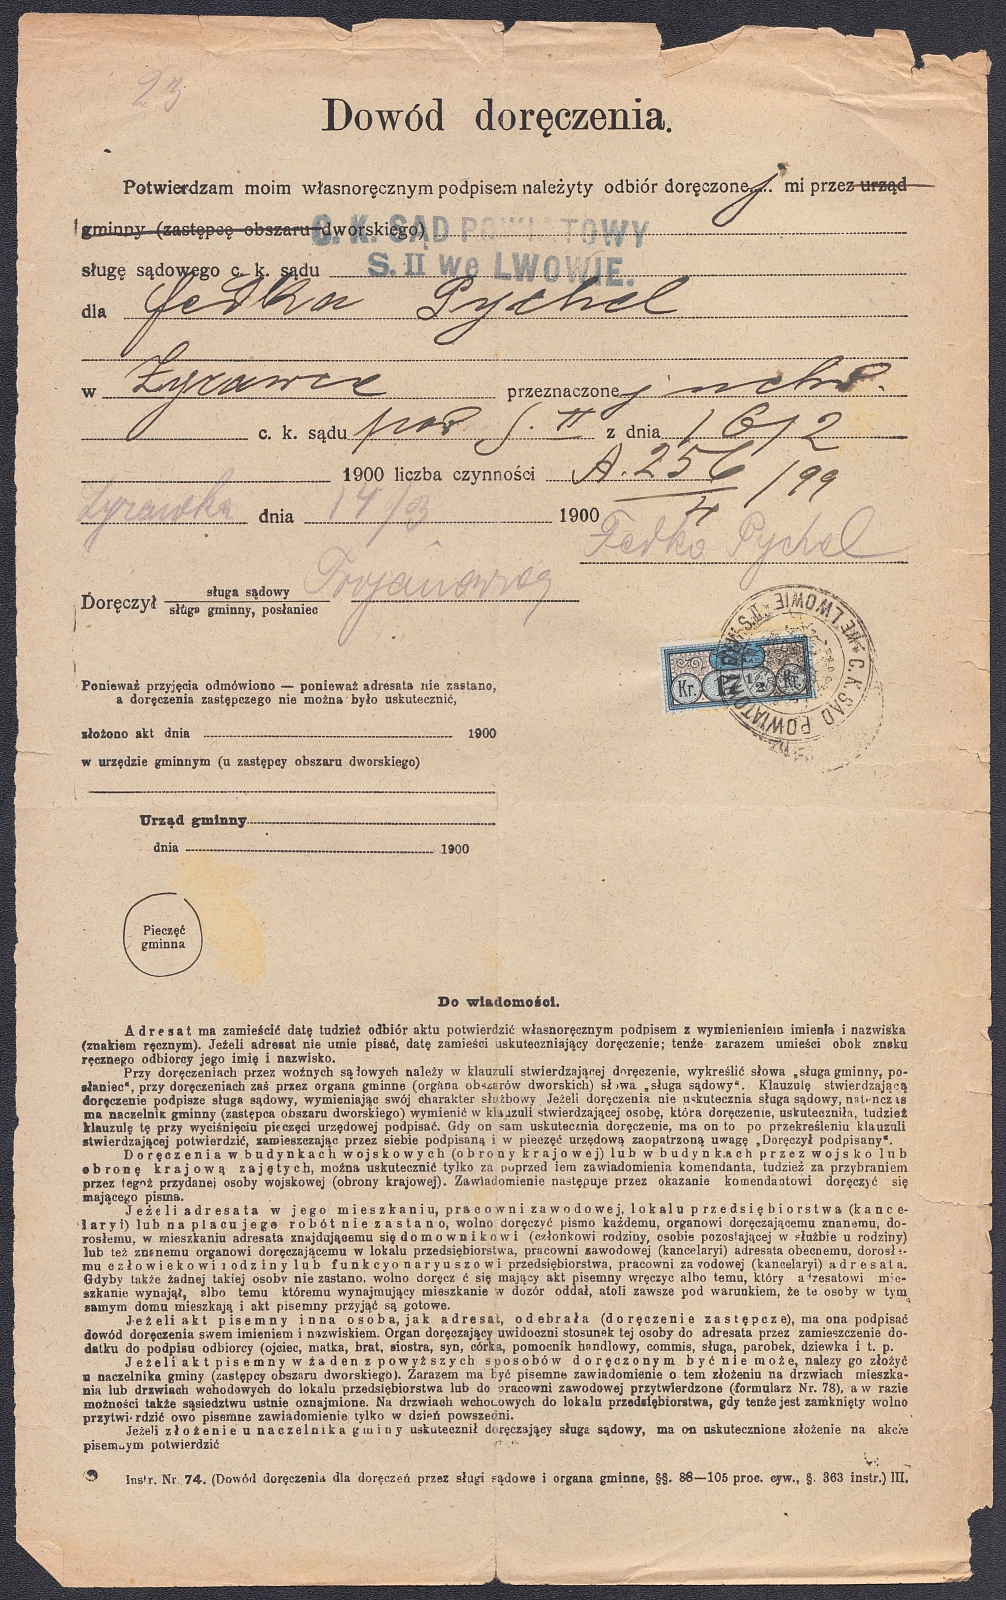 23
Dowód doręczenia.
Potwierdzam moim własnoręcznym podpisem należyty odbiór doręczone j mi przez urząd
gminny (zastępcę obszaru dworskiego)
C. K. SĄD POWIATOWY
sługę sądowego c. k. sądu S. II we LWOWIE.
dla Fedka Pychel
w Żyrawce przeznaczone j uchw.
c. k. sądu pow S. II z dnia 16/2
1900 liczba czynności A. 256/99
4
Żyrawka dnia 14/3 1900 Fedko Pychel
Doręczył sługa sądowy
sługa gminny, posłaniec
Kr. 17 1/2 Kr.
C. K. SĄD POWIATOWY S. II WE LWOWIE
Ponieważ przyjęcia odmówiono — ponieważ adresata nie zastano,
a doręczenia zastępczego nie można było uskutecznić,
złożono akt dnia 1900
w urzędzie gminnym (u zastępcy obszaru dworskiego)
Urząd gminny
dnia 1900
Pieczęć
gminna
Do wiadomości.
Adresat ma zamieścić datę tudzież odbiór aktu potwierdzić własnoręcznym podpisem z wymienieniem imienia i nazwiska
(znakiem ręcznym). Jeżeli adresat nie umie pisać, datę zamieści uskuteczniający doręczenie; tenże zarazem umieści obok znaku
ręcznego odbiorcy jego imię i nazwisko.
Przy doręczeniach przez woźnych sądowych należy w klauzuli stwierdzającej doręczenie, wykreślić słowa „sługa gminny, po-
słaniec", przy doręczeniach zaś przez organa gminne (organa obszarów dworskich) słowa „sługa sądowy". Klauzulę stwierdzającą
doręczenie podpisze sługa sądowy, wymieniając swój charakter służbowy. Jeżeli doręczenia nie uskutecznia sługa sądowy, natenczas
ma naczelnik gminny (zastępca obszaru dworskiego) wymienić w klauzuli stwierdzającej osobę, która doręczenie, uskuteczniła, tudzież
klauzulę tę przy wyciśnięciu pieczęci urzędowej podpisać. Gdy on sam uskutecznia doręczenie, ma on to po przekreśleniu klauzuli
stwierdzającej potwierdzić, zamieszczając przez siebie podpisaną i w pieczęć urzędową zaopatrzoną uwagę „Doręczył podpisany".
Doręczenia w budynkach wojskowych (obrony krajowej) lub w budynkach przez wojsko lub
obronę krajową zajętych, można uskutecznić tylko za poprzedniem zawiadomienia komendanta, tudzież za przybraniem
przez tegoż przydanej osoby wojskowej (obrony krajowej). Zawiadomienie następuje przez okazanie komendantowi doręczyć się
mającego pisma.
Jeżeli adresata w jego mieszkaniu, pracowni zawodowej, lokalu przedsiębiorstwa (kance-
laryi) lub na placu jego robót nie zastano, wolno doręczyć pismo każdemu, organowi doręczającemu znanemu, do-
rosłemu, w mieszkaniu adresata znajdującemu się domownikowi (członkowi rodziny, osobie pozostającej w służbie u rodziny)
lub też znanemu organowi doręczającemu w lokalu przedsiębiorstwa, pracowni zawodowej (kancelaryi) adresata obecnemu, dorosłe-
mu człowiekowi rodziny lub funkcyonaryuszowi przedsiębiorstwa, pracowni zawodowej (kancelaryi) adresata.
Gdyby także żadnej takiej osoby nie zastano, wolno doręczyć się mający akt pisemny wręczyć albo temu, który adresatowi mie-
szkanie wynajął, albo temu któremu wynajmujący mieszkanie w dozór oddał, atoli zawsze pod warunkiem, że te osoby w tym
samym domu mieszkają i akt pisemny przyjąć są gotowe.
Jeżeli akt pisemny inna osoba, jak adresat, odebrała (doręczenie zastępcze), ma ona podpisać
dowód doręczenia swem imieniem i nazwiskiem. Organ doręczający uwidoczni stosunek tej osoby do adresata przez zamieszczenie do-
datku do podpisu odbiorcy (ojciec, matka, brat, siostra, syn, córka, pomocnik handlowy, commis, sługa, parobek, dziewka i t. p.
Jeżeli akt pisemny w żaden z powyższych sposobów doręczonym być nie może, należy go złożyć
u naczelnika gminy (zastępcy obszaru dworskiego). Zarazem ma być pisemne zawiadomienie o tem złożeniu na drzwiach mieszka-
nia lub drzwiach wchodowych do lokalu przedsiębiorstwa lub do pracowni zawodowej przytwierdzone (formularz Nr. 78), a w razie
możności także sąsiedztwu ustnie oznajmione. Na drzwiach wchodowych do lokalu przedsiębiorstwa, gdy tenże jest zamknięty wolno
przytwierdzić owo pisemne zawiadomienie tylko w dzień powszedni.
Jeżeli złożenie u naczelnika gminy uskutecznił doręczający sługa sądowy, ma on uskutecznione złożenie na akcie
pisemnym potwierdzić
Instr. Nr. 74. (Dowód doręczenia dla doręczeń przez sługi sądowe i organa gminne, §§. 88—105 proc. cyw., §. 363 instr.) III.